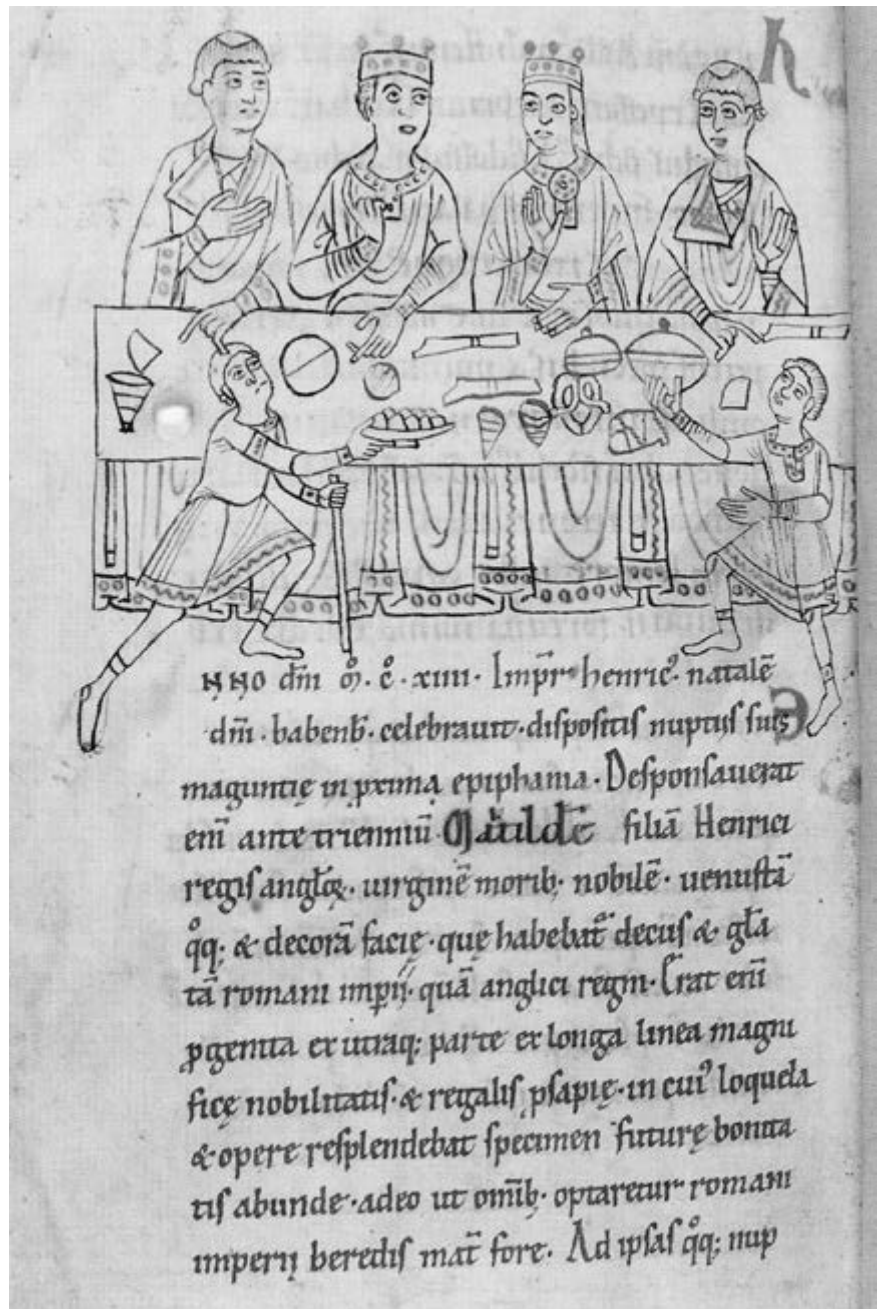 h
NNO dm̄ M̊. c̊. xiiii. Imp̄r henric᷒. natalē
dm̄. babenb̄. celebrauit. dispositis nuptiis suis
maguntię in p̱xima epiphania. Desponsauerat
eni᷒ ante trienniū Matildē filiā Henrici
regis angloꝝ. uirginē morib; nobilē. uenustā
q̊q; & decorā facię. quę habebat᷑ decus & gl̄a
tā romani imp̱ii. quā anglici regni. Erat eni᷒
ꝓgenita ex utraq; parte ex longa linea magni
ficę nobilitatis. & regalis ꝓsapię. in cui᷒ loquela
& opere resplendebat specimen futurę bonita
tis abunde. adeo ut om̄ib; optaretur romani
imperii heredis mat̄ fore. Ad ipsas q̊q; nup